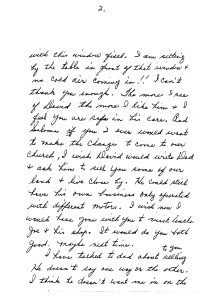 2.
with this window fixed. I am sitting
by the table in front of that window &
no cold air coming in!! I can't
thank you enough. The more I see
of David the more I like him & I
feel you are safe in his care. And
because of you I ever would want
to make the change to come to our
Church, I wish David would write Dad
& ask him to sell you some of our
land & live close by. He could still
have his own business only operated
with different motive. I wish now I
would have gone with you to visit Uncle
Joe & his shop. It would do you both
good. Maybe next time.
to you
I have talked to dad about selling
He doesn't say one way or the other.
I think he doesn't want me in on the